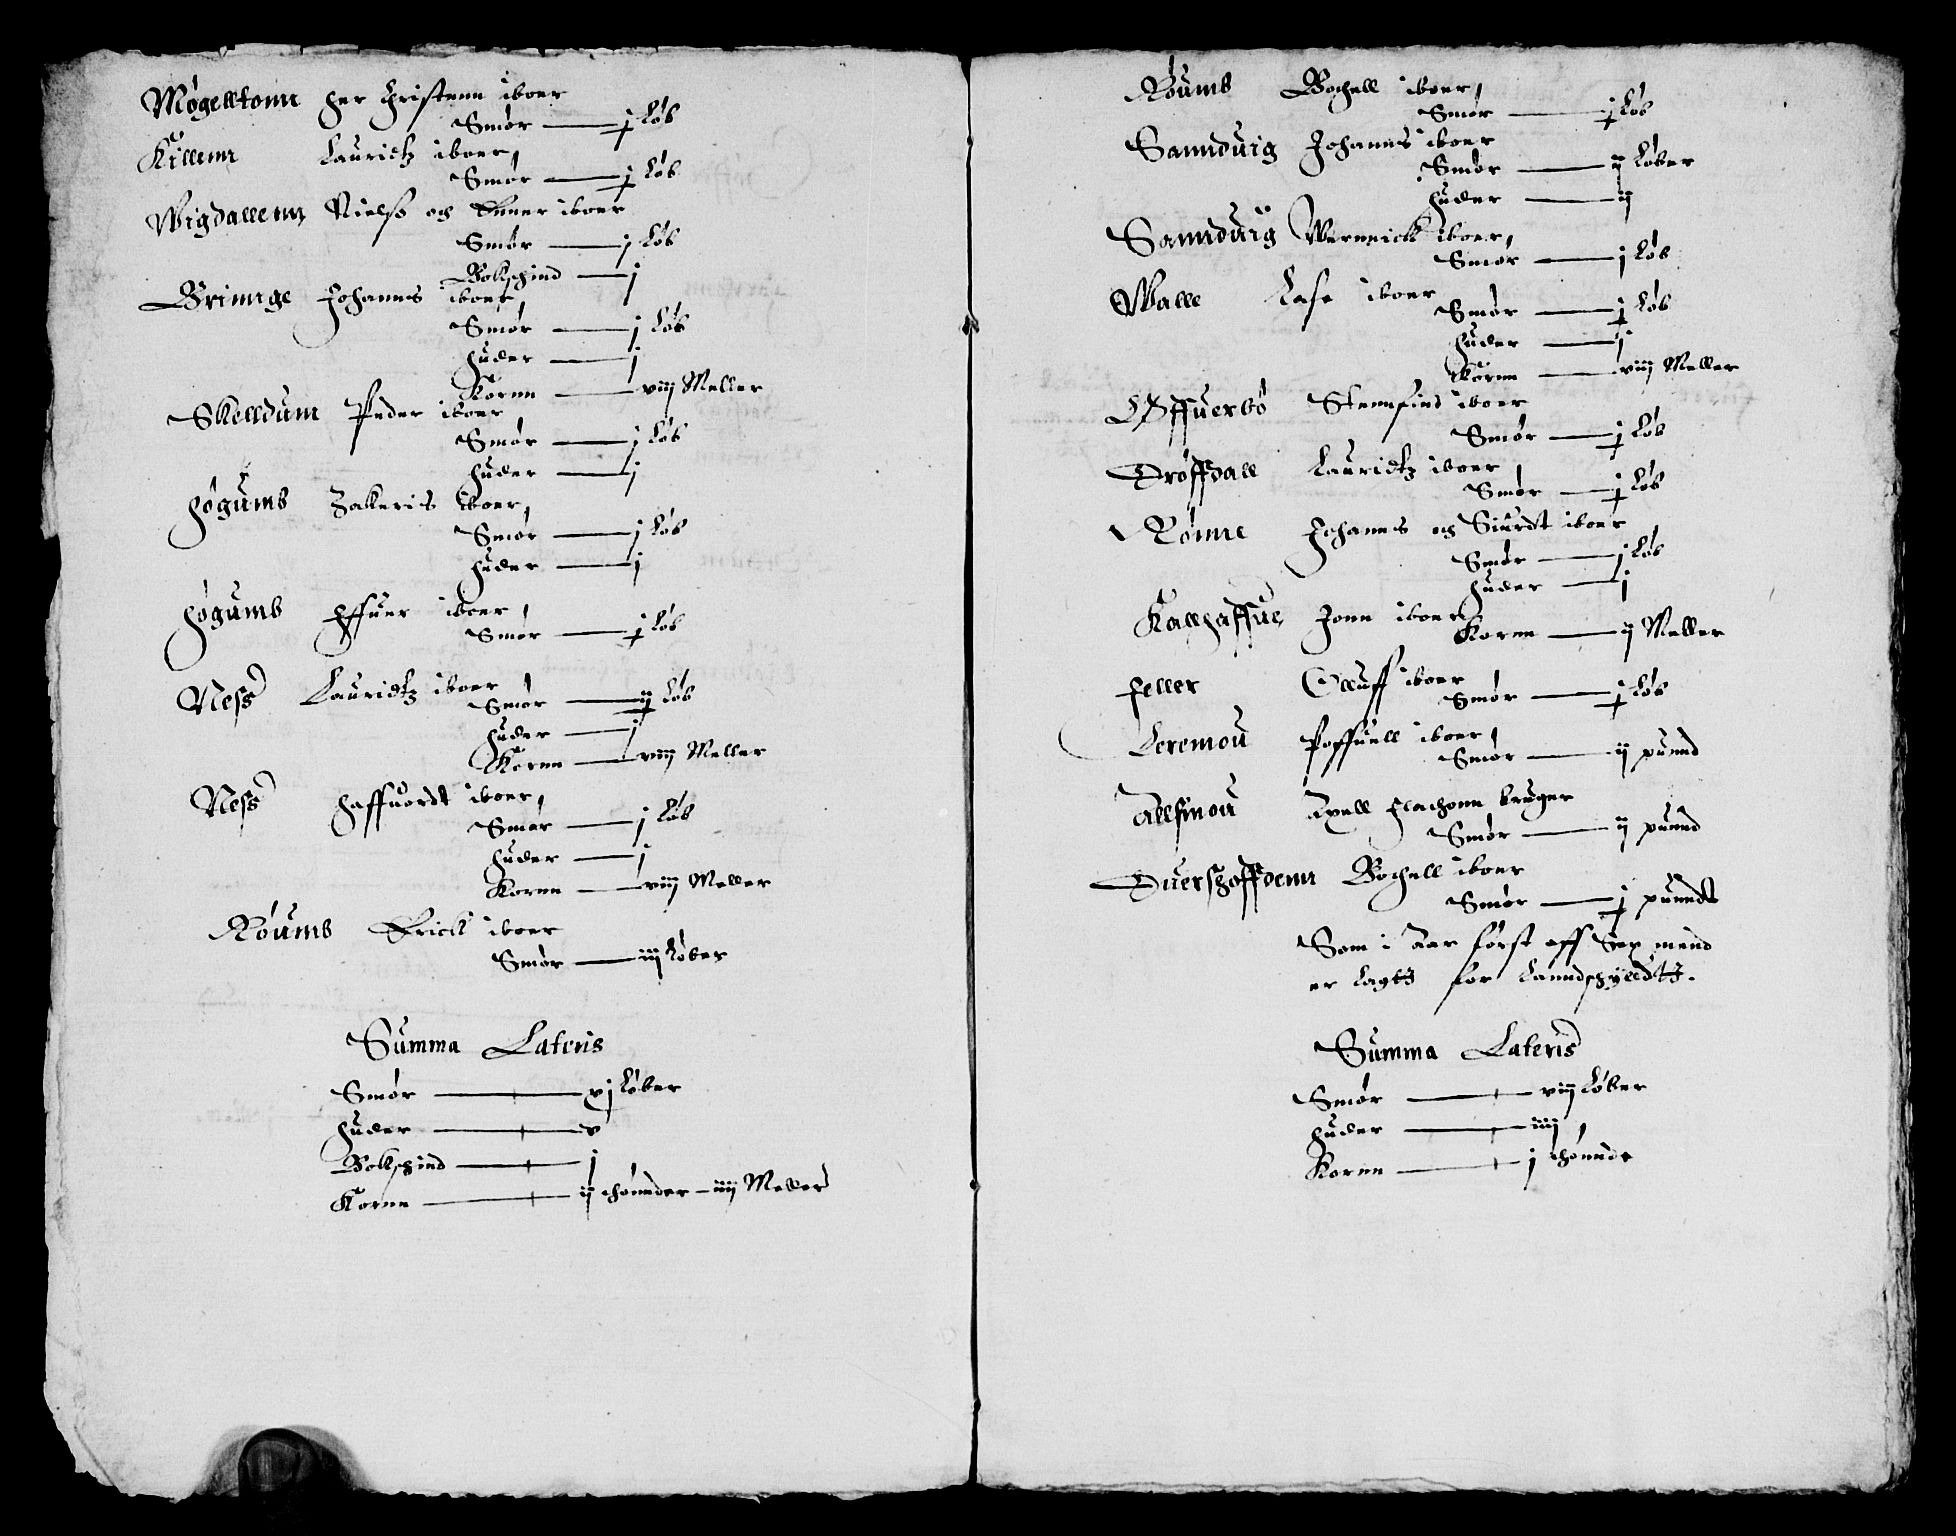 Møgelltonn her Christenn iboer
Smør — j Løb
Killenn Lauridtz iboer,
Smør — j Løb
Wigdallenn Nielss og Enner iboer
Smør — j Løb
Bockskind — j
Brinnge Johannes iboer,
Smør — j Løb
Huder — j
Kornn — viiij Meller
Skelldum Peder iboer
Smør — j Løb
Huder — j
Høgumb Zakeris iboer,
Smør — j Løb
Huder — j
Høgumb Effuer iboer,
Smør — j Løb
Ness Lauridtz iboer,
Smør — ij Løb
Huder — j
Kornn — viiij Meller
Ness Haffuordt iboer,
Smør — j Løb
Huder — j
Kornn — viiij Meller
Røumb Erick iboer
Smør — iij Løber
Summa Lateris
Smør — xj Løber
Huder — v
Bockskind — j
Kornn — ij thønnder — iiij Meller
Røumb Bochell iboer,
Smør — j Løb
Sannduig Johannes iboer
Smør — ij Løber
Huder — ij
Sannduig Wernnick iboer,
Smør — j Løb
Walle Lase iboer
Smør — j Løb
Huder — j
Kornn — viiij Meller
Øffuerbø Stennfind iboer
Smør — j Løb
Drøffdall Lauridtz iboer,
Smør — j Løb
Rønne Johannes og Siurdt iboer,
Smør — j Løb
Huder — j
Kallhaffue Jonn iboer
Kornn — ij Meller
Feller Olluff iboer,
Smør — j Løb
Leremou Poffuell iboer,
Smør — ij puund
Allsmou Axell Flachonn bruger
Smør — ij puund
Duerszoffdenn Bochell iboer
Smør — j puundt
Som i Aar først aff Sex mend
er lagtt for Lanndskylldtt.
Summa Lateris
Smør — viij Løber
Huder — iiij,
Kornn — j thønnde